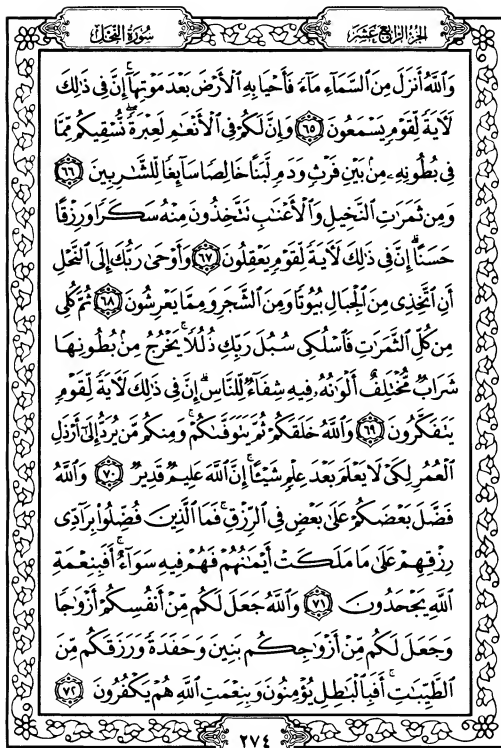 الجزء الرابع عشر
سورة النحل
وَاللَّهُ أَنزَلَ مِنَ السَّمَاءِ مَاءً فَأَحْيَا بِهِ الْأَرْضَ بَعْدَ مَوْتِهَا ۚ إِنَّ فِي ذَٰلِكَ
لَآيَةً لِّقَوْمٍ يَسْمَعُونَ ٦٥ وَإِنَّ لَكُمْ فِي الْأَنْعَٰمِ لَعِبْرَةً ۖ نُّسْقِيكُم مِّمَّا
فِي بُطُونِهِۦ مِنۢ بَيْنِ فَرْثٍ وَدَمٍ لَّبَنًا خَالِصًا سَآئِغًا لِّلشَّٰرِبِينَ ٦٦
وَمِن ثَمَرَٰتِ النَّخِيلِ وَالْأَعْنَٰبِ تَتَّخِذُونَ مِنْهُ سَكَرًا وَرِزْقًا
حَسَنًا ۗ إِنَّ فِي ذَٰلِكَ لَآيَةً لِّقَوْمٍ يَعْقِلُونَ ٦٧ وَأَوْحَىٰ رَبُّكَ إِلَى النَّحْلِ
أَنِ اتَّخِذِي مِنَ الْجِبَالِ بُيُوتًا وَمِنَ الشَّجَرِ وَمِمَّا يَعْرِشُونَ ٦٨ ثُمَّ كُلِي
مِن كُلِّ الثَّمَرَٰتِ فَاسْلُكِي سُبُلَ رَبِّكِ ذُلُلًا ۚ يَخْرُجُ مِنۢ بُطُونِهَا
شَرَابٌ مُّخْتَلِفٌ أَلْوَٰنُهُۥ فِيهِ شِفَآءٌ لِّلنَّاسِ ۗ إِنَّ فِي ذَٰلِكَ لَآيَةً لِّقَوْمٍ
يَتَفَكَّرُونَ ٦٩ وَاللَّهُ خَلَقَكُمْ ثُمَّ يَتَوَفَّىٰكُمْ ۚ وَمِنكُم مَّن يُرَدُّ إِلَىٰ أَرْذَلِ
الْعُمُرِ لِكَيْ لَا يَعْلَمَ بَعْدَ عِلْمٍ شَيْـًٔا ۚ إِنَّ اللَّهَ عَلِيمٌ قَدِيرٌ ٧٠ وَاللَّهُ
فَضَّلَ بَعْضَكُمْ عَلَىٰ بَعْضٍ فِي الرِّزْقِ ۚ فَمَا الَّذِينَ فُضِّلُوا بِرَآدِّي
رِزْقِهِمْ عَلَىٰ مَا مَلَكَتْ أَيْمَٰنُهُمْ فَهُمْ فِيهِ سَوَآءٌ ۚ أَفَبِنِعْمَةِ
اللَّهِ يَجْحَدُونَ ٧١ وَاللَّهُ جَعَلَ لَكُم مِّنْ أَنفُسِكُمْ أَزْوَٰجًا
وَجَعَلَ لَكُم مِّنْ أَزْوَٰجِكُم بَنِينَ وَحَفَدَةً وَرَزَقَكُم مِّنَ
الطَّيِّبَٰتِ ۚ أَفَبِالْبَٰطِلِ يُؤْمِنُونَ وَبِنِعْمَتِ اللَّهِ هُمْ يَكْفُرُونَ ٧٢
٢٧٤